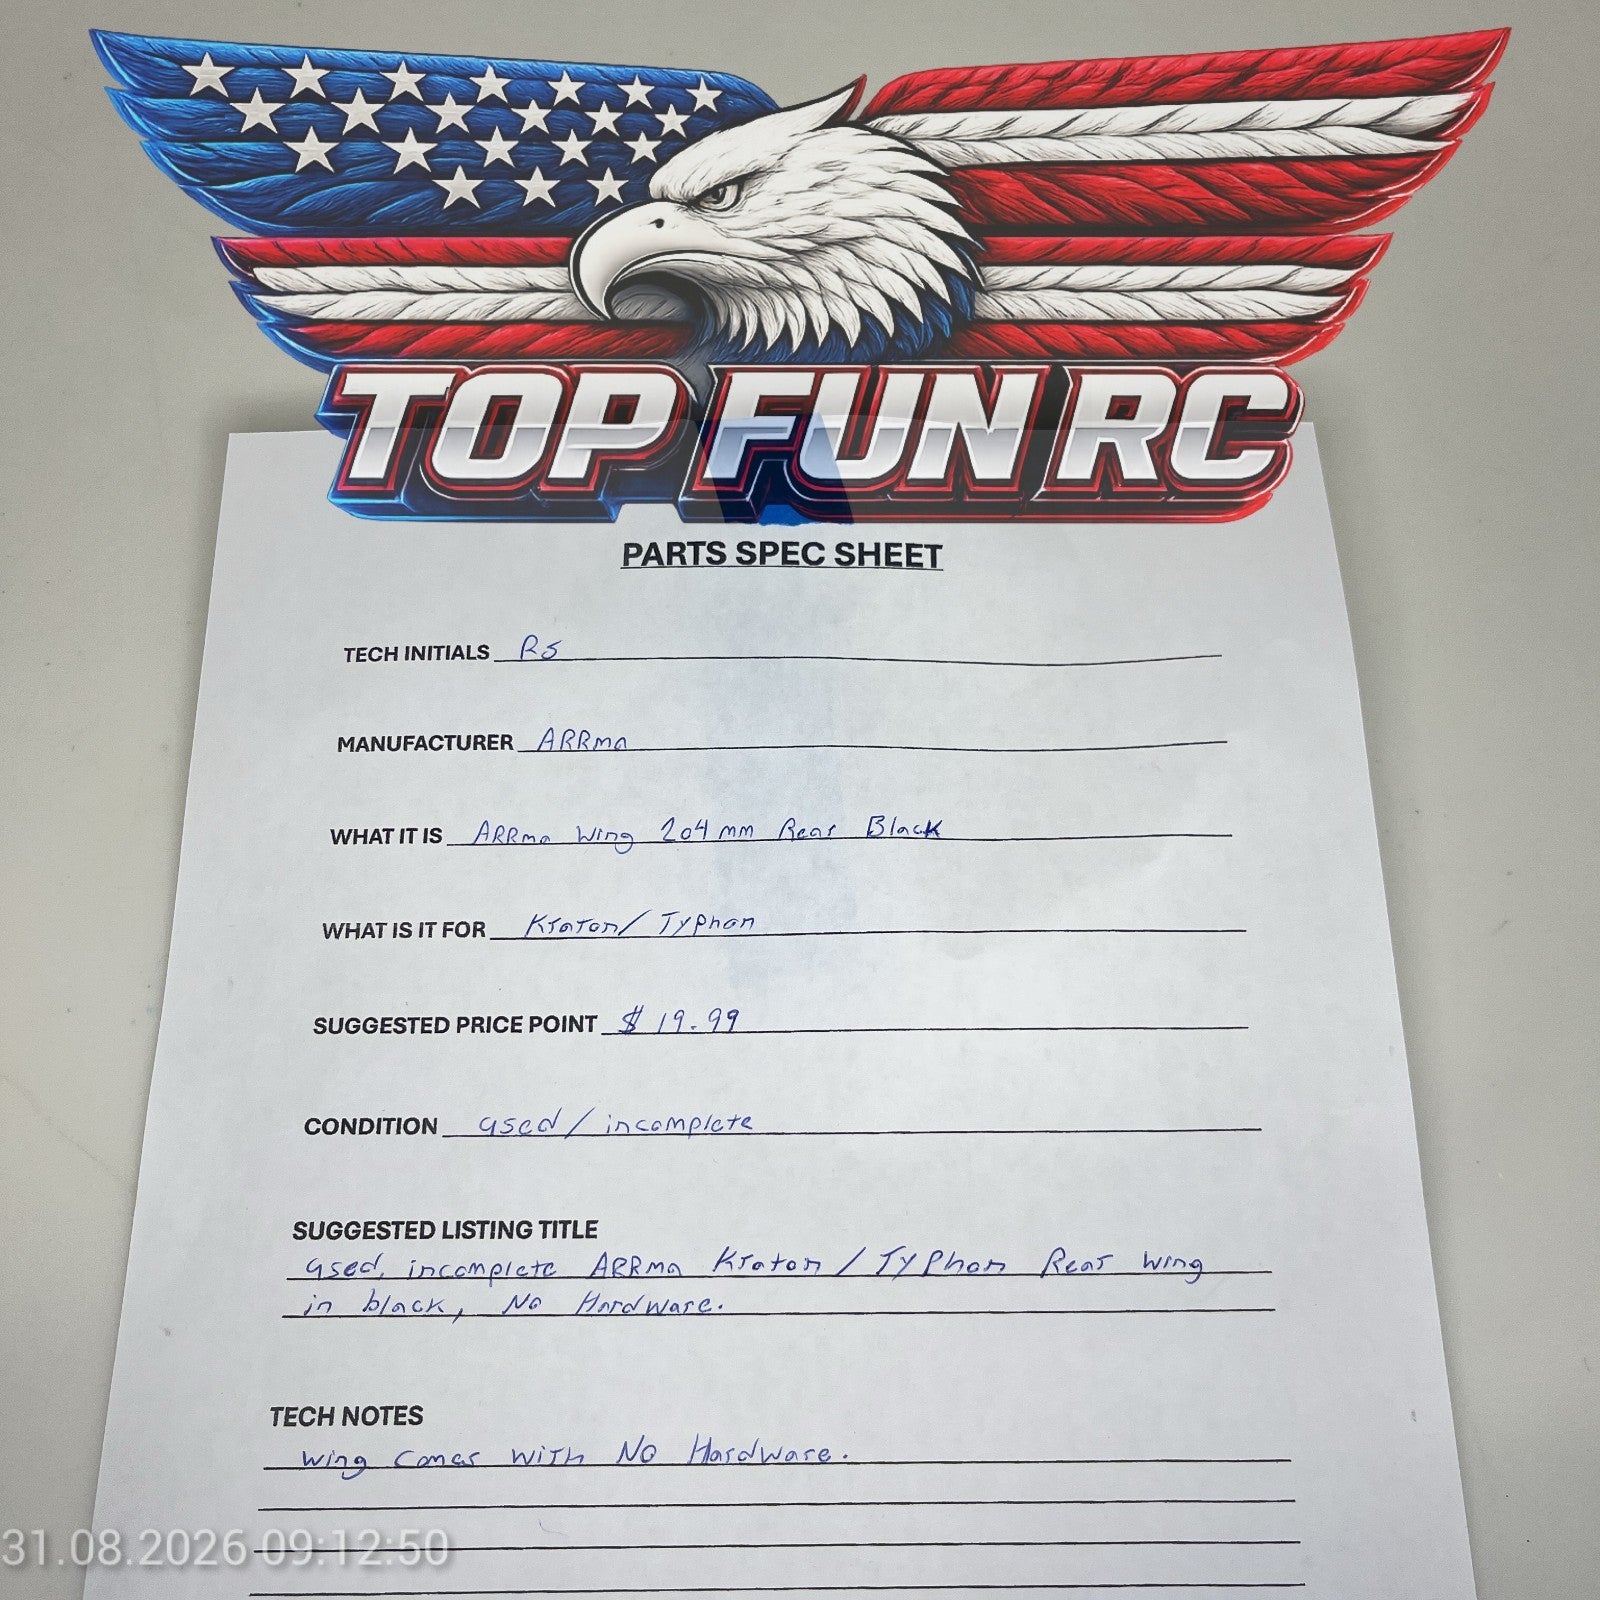 TOP FUN RC
PARTS SPEC SHEET
TECH INITIALS RS
MANUFACTURER ARRma
WHAT IT IS ARRma Wing 204mm Rear Black
WHAT IS IT FOR Kraton/ Typhon
SUGGESTED PRICE POINT $ 19.99
CONDITION used / incomplete
SUGGESTED LISTING TITLE
used, incomplete ARRma Kraton / Typhon Rear wing
in black, No Hardware.
TECH NOTES
wing comes with No Hardware.
31.08.2026 09:12:50